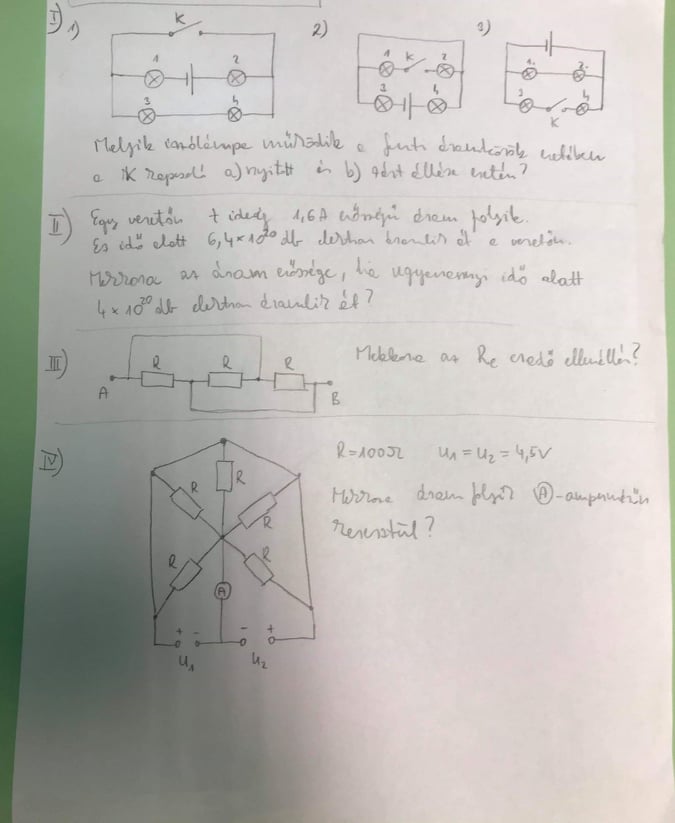 I) 1) K 2) 3)
1 2 1 K 2 1. 2.
3 4 3 4 3 4
K
Melyik izzólámpa működik a fenti áramkörök esetében
a K kapcsoló a) nyitott és b) zárt állása esetén?
II) Egy vezetőn t ideig 1,6A erősségű áram folyik.
Ez idő alatt 6,4×10²⁰ db elektron áramlik át a vezetőn.
Mekkora az áram erőssége, ha ugyanennyi idő alatt
4×10²⁰ db elektron áramlik át?
III) R R R Mekkora az Re eredő ellenállás?
A B
IV) R=100Ω U₁ = U₂ = 4,5V
R R R Mekkora áram folyik Ⓐ-ampermérőn
keresztül?
R R
A
+ - - +
U₁ U₂